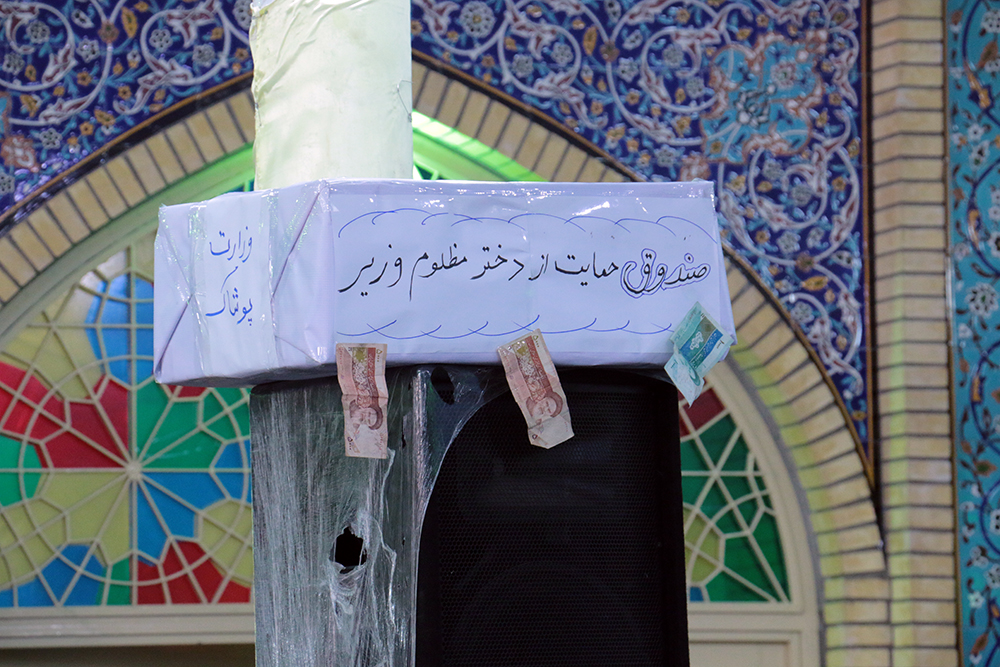 صندوق حمایت از دختر مظلوم وزیر
وزارت
پوشاک